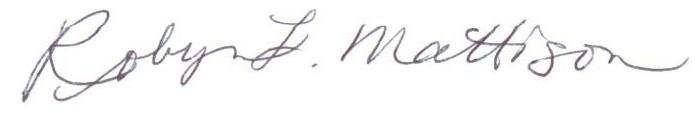 Robyn L. Mattison